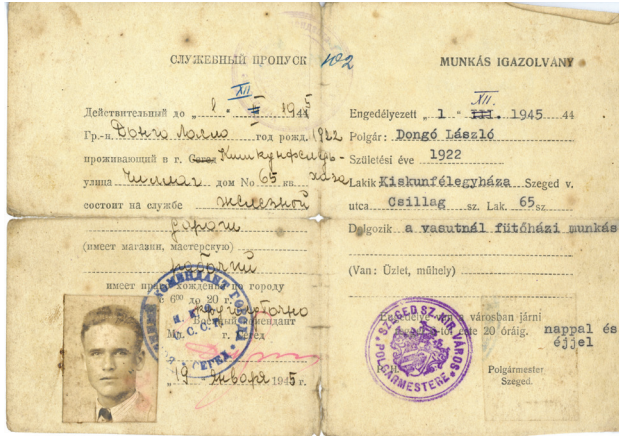 СЛУЖЕБНЫЙ ПРОПУСК 102
XII
Действительный до „1 " 1945
Гр-н. Донго Ласло год рожд. 1922
проживающий в г. Сегед Кишкунфельдь-
хаза
улица Чиллаг дом No 65 кв.
состоит на службе железной
дороги
(имеет магазин, мастерскую)
рабочий
имеет право хождения по городу
с 6⁰⁰ до 20 г.
круглосуточно
Военный комендант
г. Сегед
„19" Января 1945 г.
MUNKÁS IGAZOLVÁNY
XII.
Engedélyezett „ 1 " III. 1945 44
Polgár: Dongó László
Születési éve 1922
Lakik Kiskunfélegyháza Szeged v.
utca Csillag sz. Lak. 65 sz
Dolgozik a vasutnál fütőházi munkás
(Van: Üzlet, műhely)
városban járni
20 óráig. nappal és
éjjel
Polgármester
Szeged.
SZEGED SZ. KIR. VÁROS
POLGÁRMESTERE